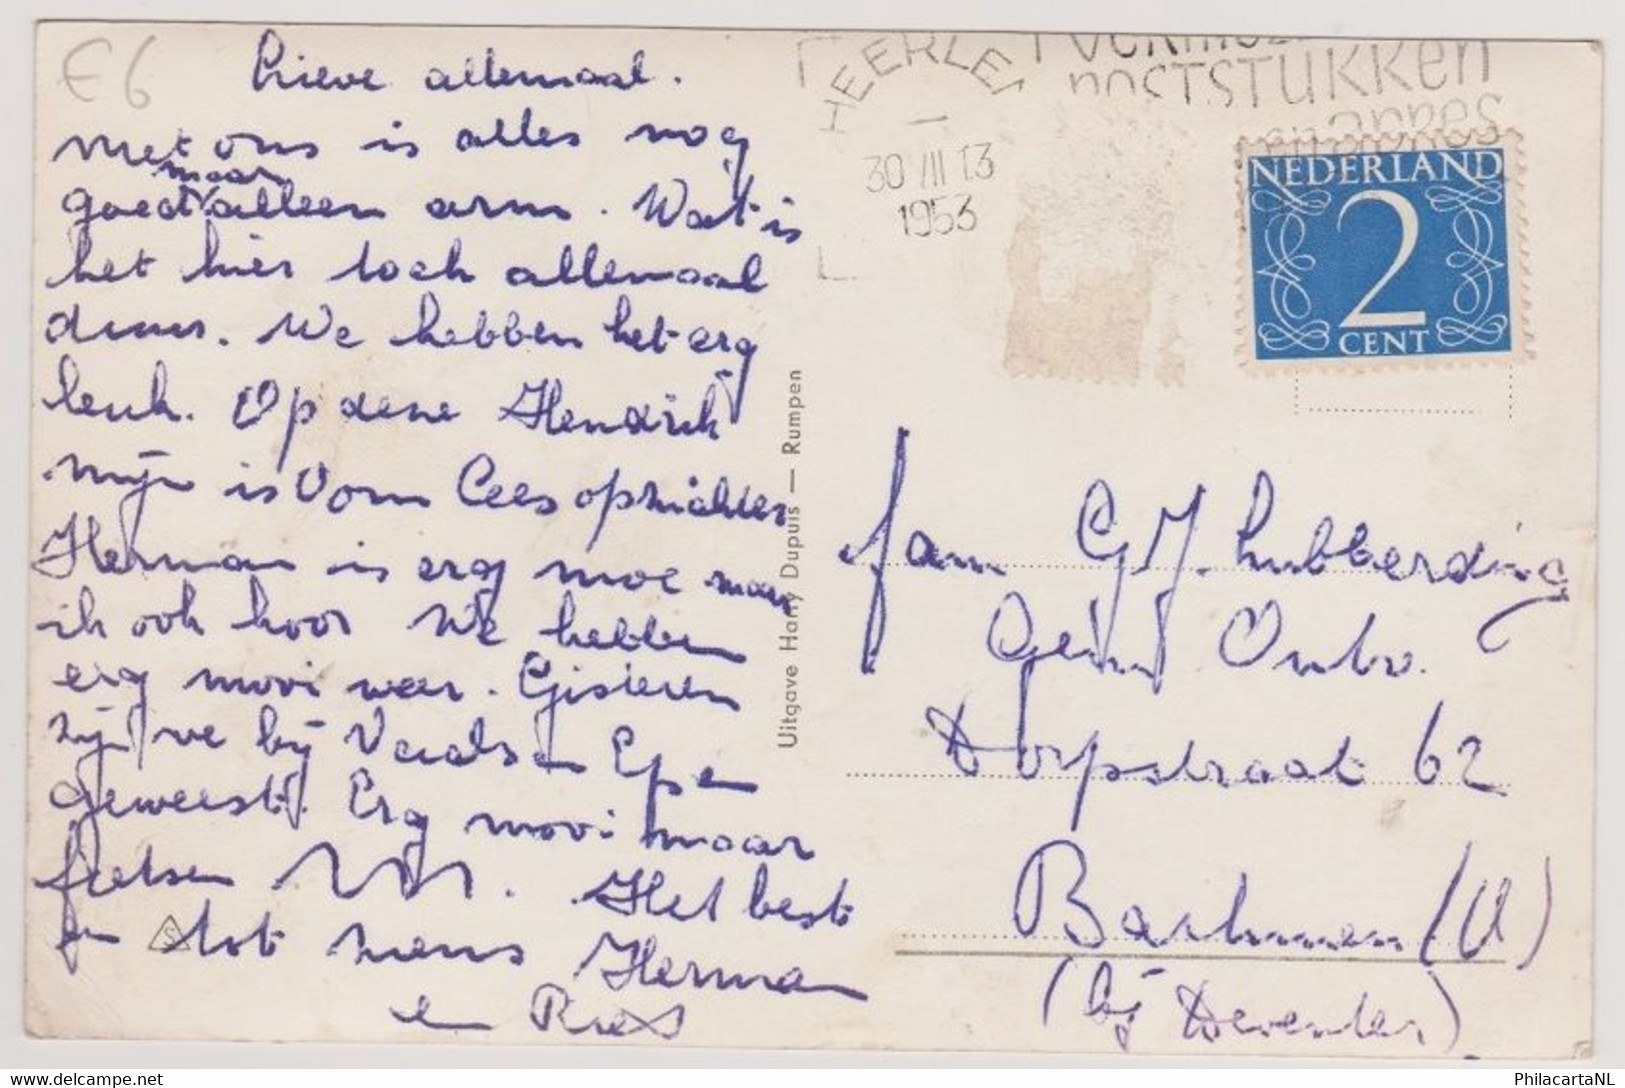 €6
Lieve allemaal.
Met ons is alles nog
maar
goed alleen arm. Wat is
het hier toch allemaal
duur. We hebben het erg
leuk. Op deze Hendrik
mijn is Oom Cees opzichter
Herman is erg moe maar
ik ook hoor We hebben
erg mooi weer. Gisteren
zijn we bij Vaals en Epen
geweest. Erg mooi maar
fietsen. Het beste
en tot ziens Herman
en Ries
Uitgave Harry Dupuis — Rumpen
HEERLEN
30 VII 13
1953
poststukken
NEDERLAND
2
CENT
fam G J. Lubberding
Dorpstraat 62
Bathmen (O)
(bij Deventer)
PhilacartaNL